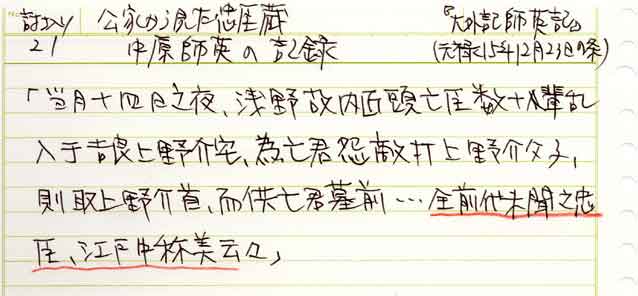 討入り 公家から見た忠臣蔵 『大外記師英記』
21 中原師英の記録 (元禄15年12月23日の条)
「当月十四日之夜、浅野故内匠頭亡臣数十人輩乱
入于吉良上野介宅、為亡君怨敵打上野介父子、
則取上野介首、而供亡君墓前…全前代未聞之忠
臣、江戸中称美云々」